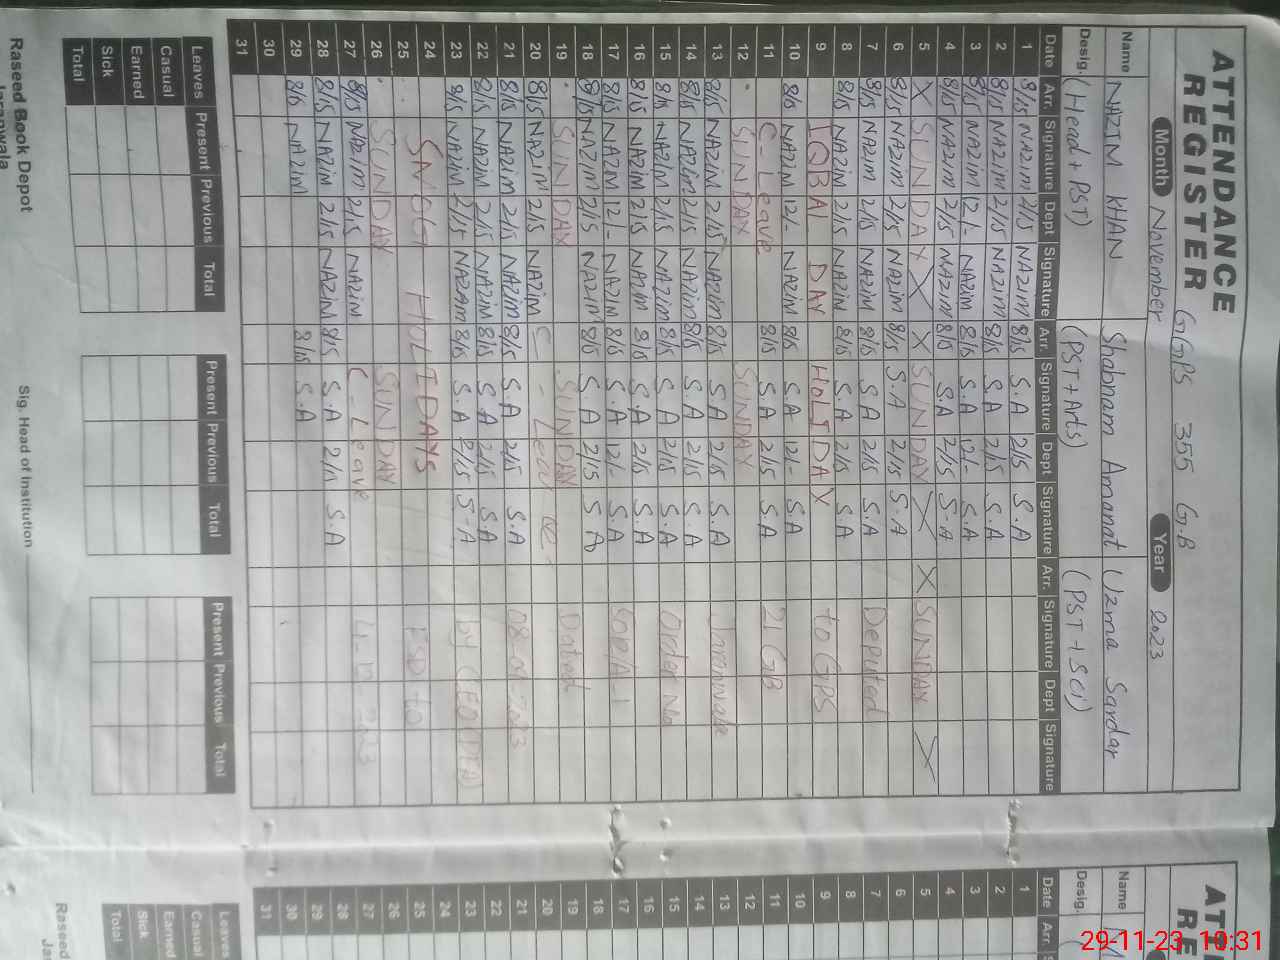 ATTENDANCE
REGISTER GGPS 355 G.B
Month November Year 2023
Name NAZIM KHAN Shabnam Amanat Uzma Sardar
Desig. (Head+PST) (PST+Arts) (PST+SCi)
Date Arr. Signature Dept Signature Arr. Signature Dept Signature Arr. Signature Dept Signature
1 8/15 NAZIM 2/15 NAZIM 8/15 S.A 2/15 S.A
2 8/15 NAZIM 2/15 NAZIM 8/15 S.A 2/15 S.A
3 8/15 NAZIM 12/- NAZIM 8/15 S.A 12/- S.A
4 8/15 NAZIM 2/15 NAZIM 8/15 S.A 2/15 S-A
5 X SUNDAY X X SUNDAY X X SUNDAY X
6 8/15 NAZIM 2/15 NAZIM 8/15 S.A 2/15 S.A
7 8/15 NAZIM 2/15 NAZIM 8/15 S A 2/15 S.A Deputed
8 8/15 NAZIM 2/15 NAZIM 8/15 S.A 2/15 S.A
9 IQBAL DAY HOLIDAY to GPS
10 8/15 NAZIM 12/- NAZIM 8/15 S.A 12/- S.A
11 C-Leave 8/15 S.A 2/15 S.A 21 GB
12 SUNDAY SUNDAY
13 8/15 NAZIM 2/15 NAZIM 8/15 S A 2/15 S.A Jaranwala
14 8/15 NAZIM 2/15 NAZIM 8/15 S.A 2/15 S.A
15 8/15 NAZIM 2/15 NAZIM 8/15 S.A 2/15 S.A Order No
16 8/15 NAZIM 2/15 NAZIM 8/15 S.A 2/15 S.A
17 8/15 NAZIM 12/- NAZIM 8/15 S.A 12/- S.A
18 8/15 NAZIM 2/15 NAZIM 8/15 S A 2/15 S A
19 SUNDAY SUNDAY Dated
20 8/15 NAZIM 2/15 NAZIM C-Leave
21 8/15 NAZIM 2/15 NAZIM 8/15 S.A 2/15 S.A
22 8/15 NAZIM 2/15 NAZIM 8/15 S.A 2/15 S.A
23 8/15 NAZIM 2/15 NAZIM 8/15 S.A 2/15 S-A by CEO (DEA)
24 SMOG HOLIDAYS
25 FSD to
26 SUNDAY SUNDAY
27 8/15 NAZIM 2/15 NAZIM C-Leave
28 8/15 NAZIM 2/15 NAZIM 8/15 S.A 2/15 S.A
29 8/15 NAZIM 8/15 S.A
30
31
Leaves Present Previous Total Present Previous Total Present Previous Total
Casual
Earned
Sick
Total
Sig. Head of Institution
Raseed Book Depot
Jaranwala
Name
Desig.
Date Arr.
1
2
3
4
5
6
7
8
9
10
11
12
13
14
15
16
17
18
19
20
21
22
23
24
25
26
27
28
29
30
31
Leaves
Casual
Earned
Sick
Total
Raseed
29-11-23 10:31